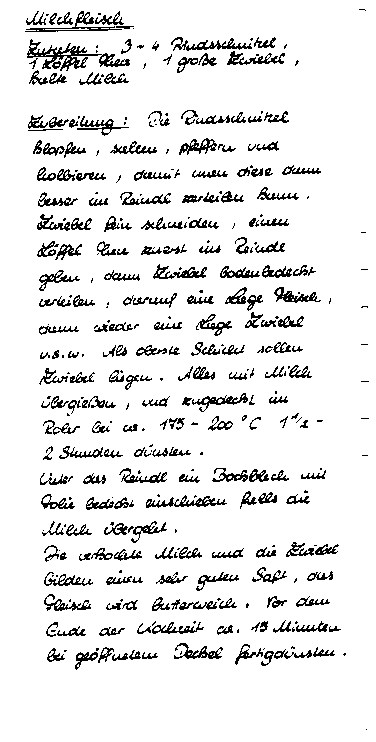 Milchfleisch
Zutaten: 3-4 Rindsschnitzel,
1 Löffel Thea, 1 große Zwiebel,
kalte Milch
Zubereitung: Die Rindsschnitzel
klopfen, salzen, pfeffern und
halbieren, damit man diese dann
besser im Reindl verteilen kann.
Zwiebel fein schneiden, einen
Löffel Thea zuerst ins Reindl
geben, dann Zwiebel bodenbedeckt
verteilen, darauf eine Lage Fleisch,
dann wieder eine Lage Zwiebel
u.s.w. Als oberste Schicht sollen
Zwiebel liegen. Alles mit Milch
übergießen, und zugedeckt im
Rohr bei ca. 175 - 200 °C 1 1/2 -
2 Stunden dünsten.
Unter das Reindl ein Backblech mit
Folie bedeckt einschieben falls die
Milch übergeht.
Die verkochte Milch und die Zwiebel
bilden einen sehr guten Saft, das
Fleisch wird butterweich. Vor dem
Ende der Kochzeit ca. 15 Minuten
bei geöffnetem Deckel fertigdünsten.